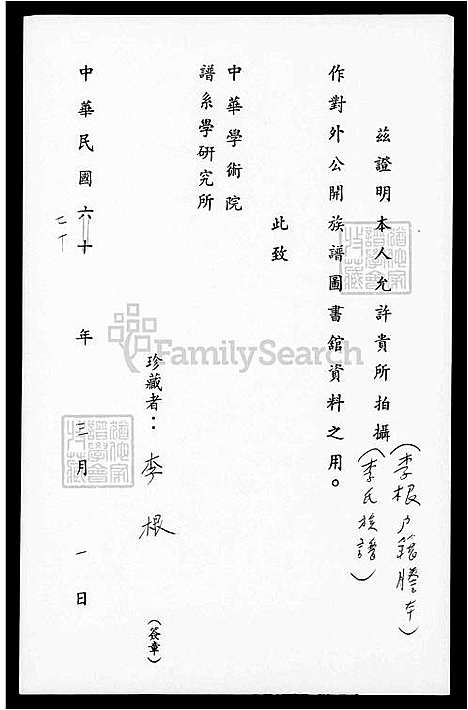 茲證明本人允許貴所拍攝(李根戶籍謄本)
(李氏族譜)
作對外公開族譜圖書館資料之用。
此致
中華學術院
譜系學研究所
珍藏者：李根(簽章)
中華民國六十年三月一日
七十
FamilySearch